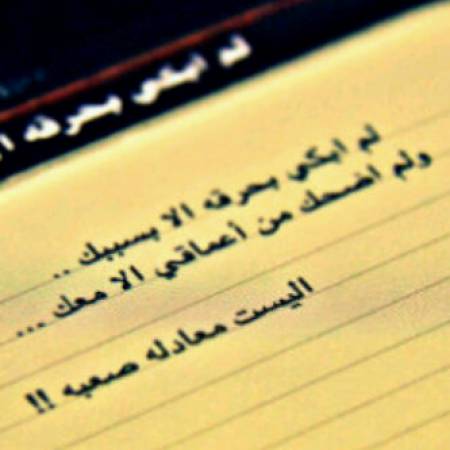 لم ابكي بحرقه ا
لم ابكي بحرقه الا بسببك ..
ولم اضحك من أعماقي الا معك ...
اليست معادله صعبه !!